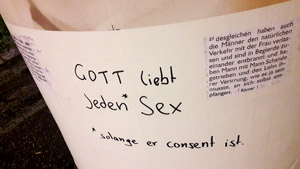 GOTT liebt
Jeden* Sex
* solange er consent ist.
27 desgleichen haben auch
die Männer den natürlichen
Verkehr mit der Frau verlas-
sen und sind in Begierde zu-
einander entbrannt und ha-
ben Mann mit Mann Schande
getrieben und den Lohn ih-
rer Verirrung, wie es ja sein
musste, an sich selbst em-
pfangen.